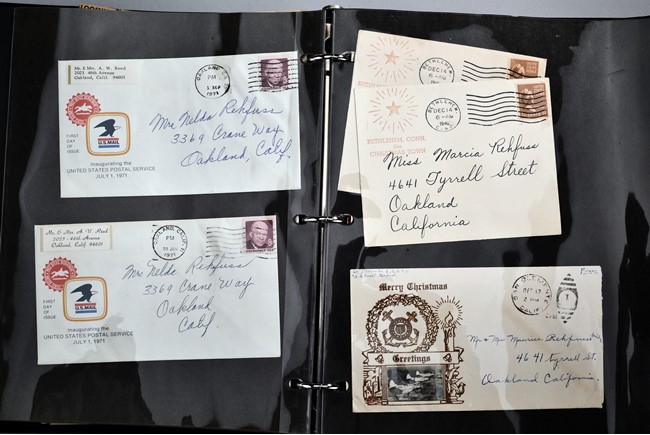 Mr. & Mrs. A. W. Reed
2023 48th Avenue
Oakland, Calif. 94601
OAKLAND, CA
PM
5 SEP
1971
FIRST
DAY
OF
ISSUE
U.S.MAIL
Inaugurating the
UNITED STATES POSTAL SERVICE
JULY 1, 1971
Mrs Nelda Rehfuss
3369 Crane Way
Oakland, Calif.
Mr. & Mrs. A. W. Reed
2023 - 48th Avenue
Oakland, Calif. 94601
OAKLAND, CALIF
PM
1971
FIRST
DAY
OF
ISSUE
U.S.MAIL
Inaugurating the
UNITED STATES POSTAL SERVICE
JULY 1, 1971
Mrs Nelda Rehfuss
3369 Crane Way
Oakland
Calif.
BETHLEHEM
DEC 14
6 - PM
BETHLEHEM
DEC 14
6 - PM
CONN.
BETHLEHEM, CONN.
CHRISTMAS TOWN
Miss Marcia Rehfuss
4641 Tyrrell Street
Oakland
California
SAN CLEMENTE
DEC 17
2 PM
CALIF.
Merry Christmas
Greetings
Mr & Mrs Maurice Rehfuss
4641 Tyrrell St.
Oakland California.